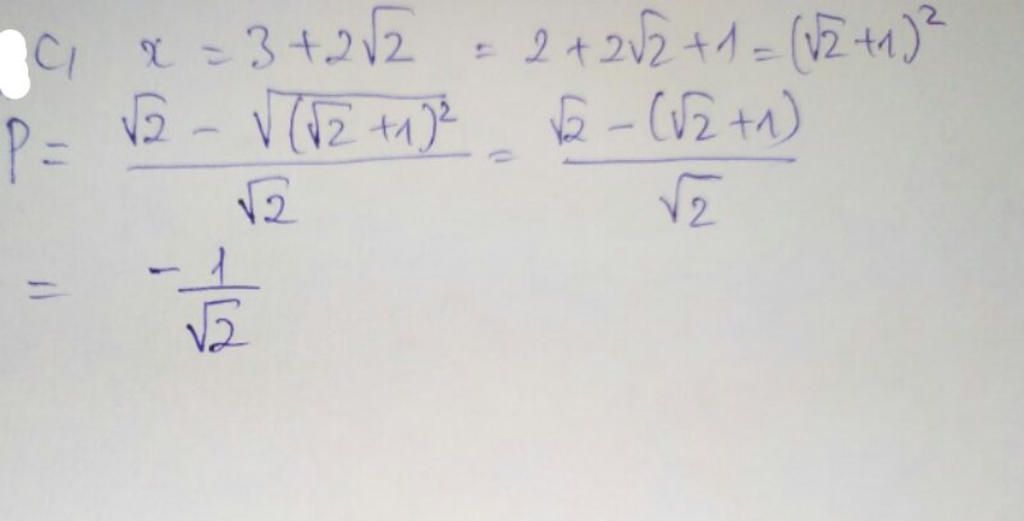 C, x = 3 + 2√2 = 2 + 2√2 + 1 = (√2 + 1)²
P = (√2 - √((√2 + 1)²))/√2 = (√2 - (√2 + 1))/√2
= -1/√2